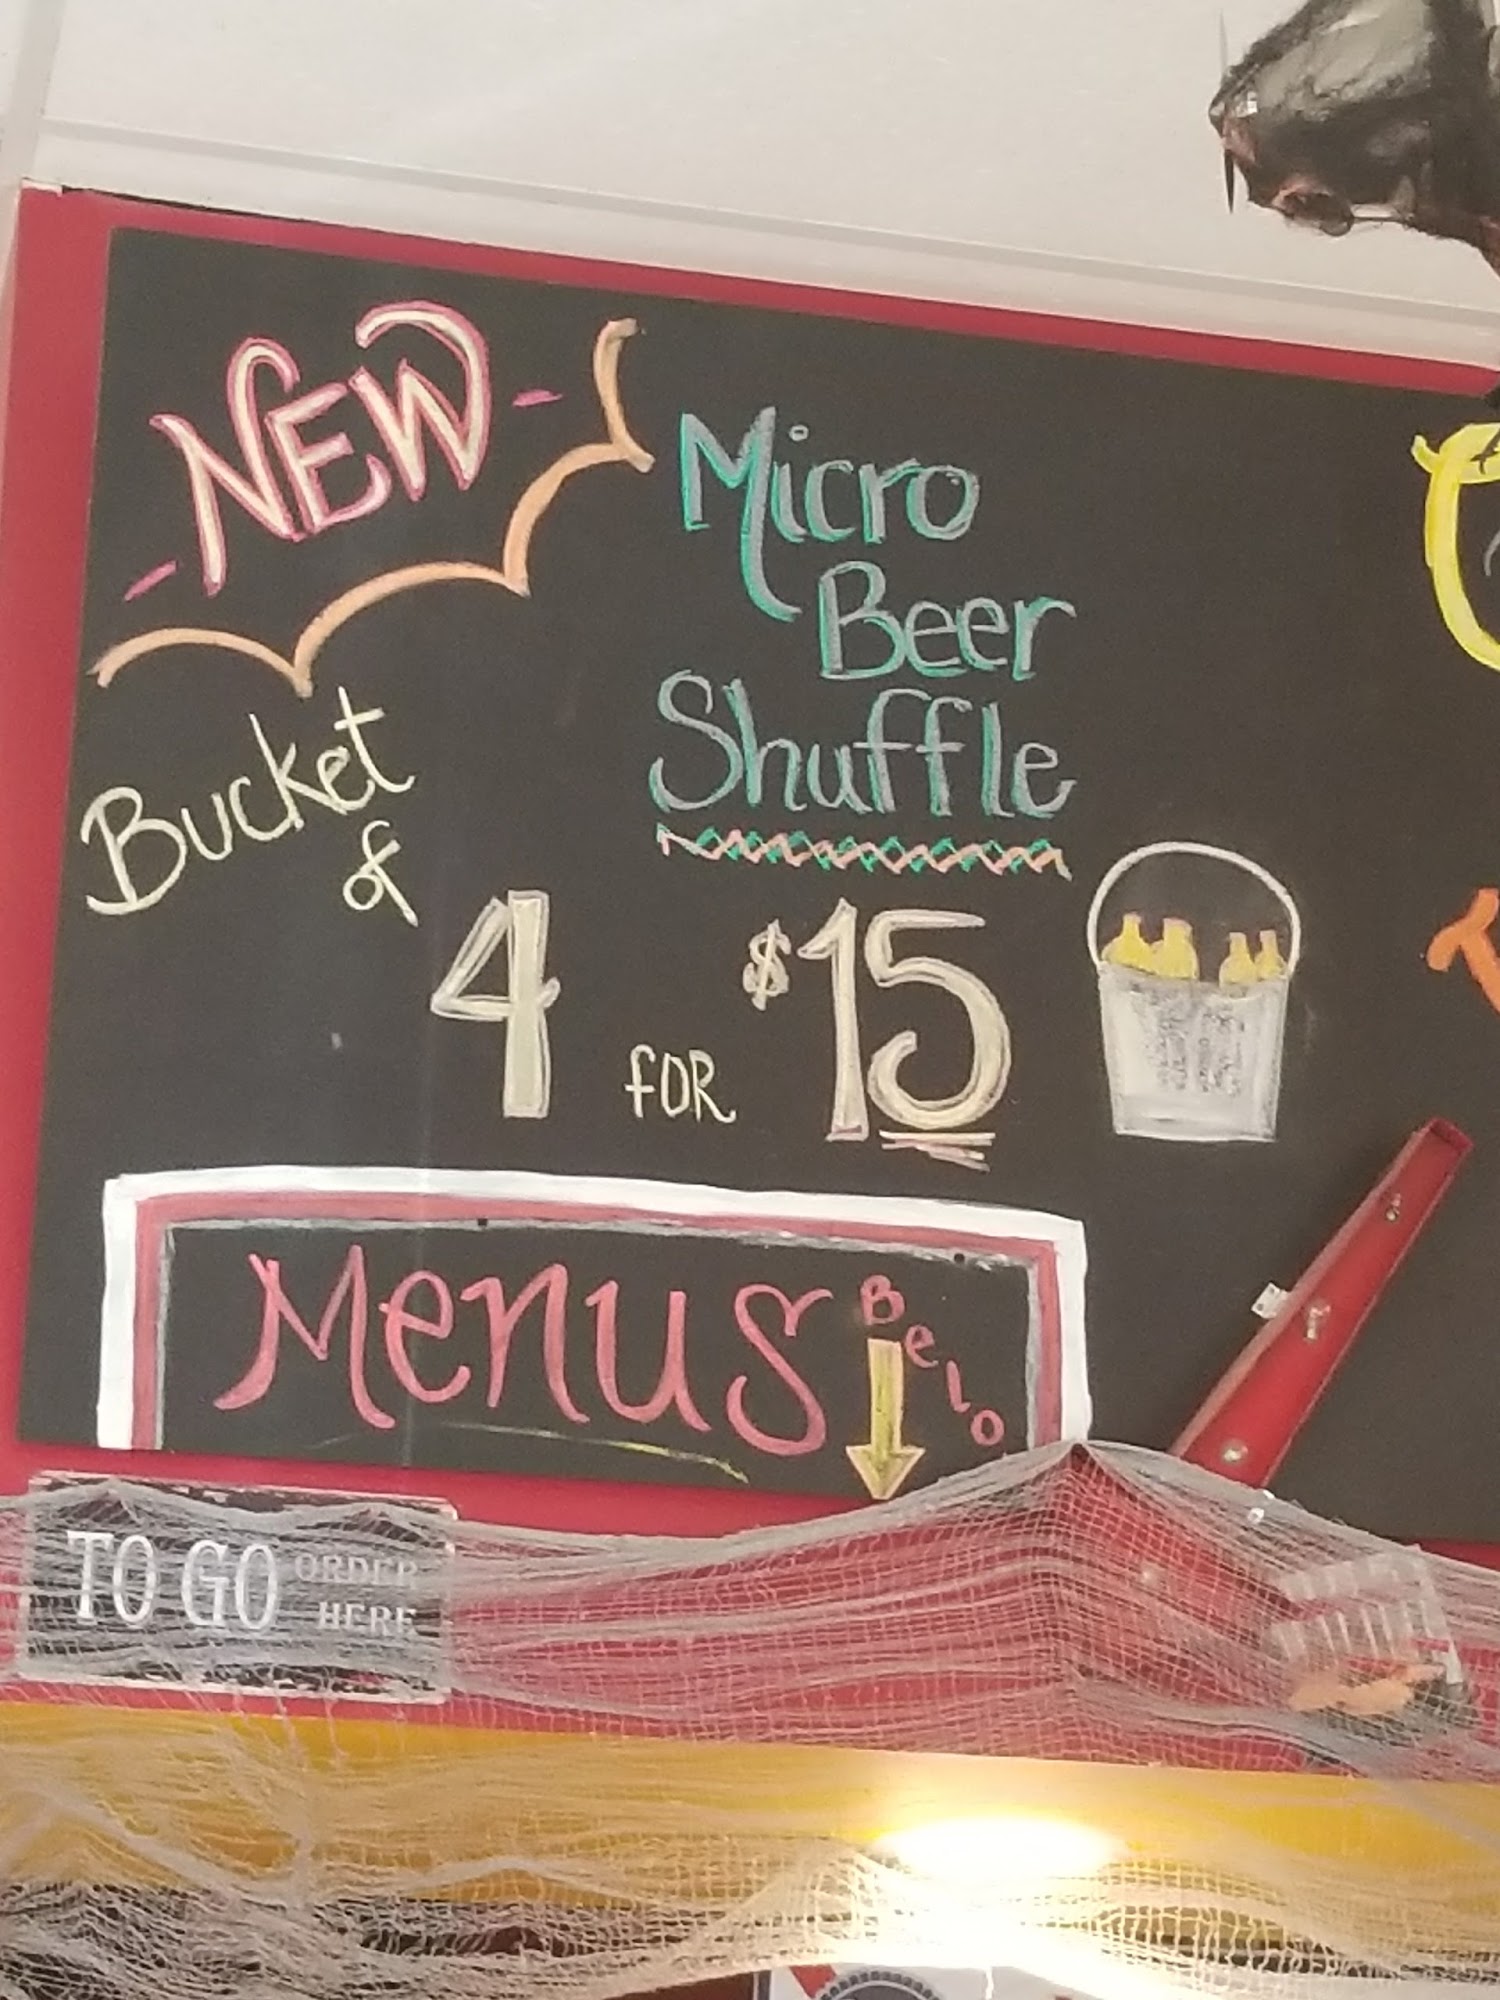 NEW
Micro
Beer
Shuffle
Bucket
of
4 FOR $15
Menus Belo
TO GO ORDER
HERE